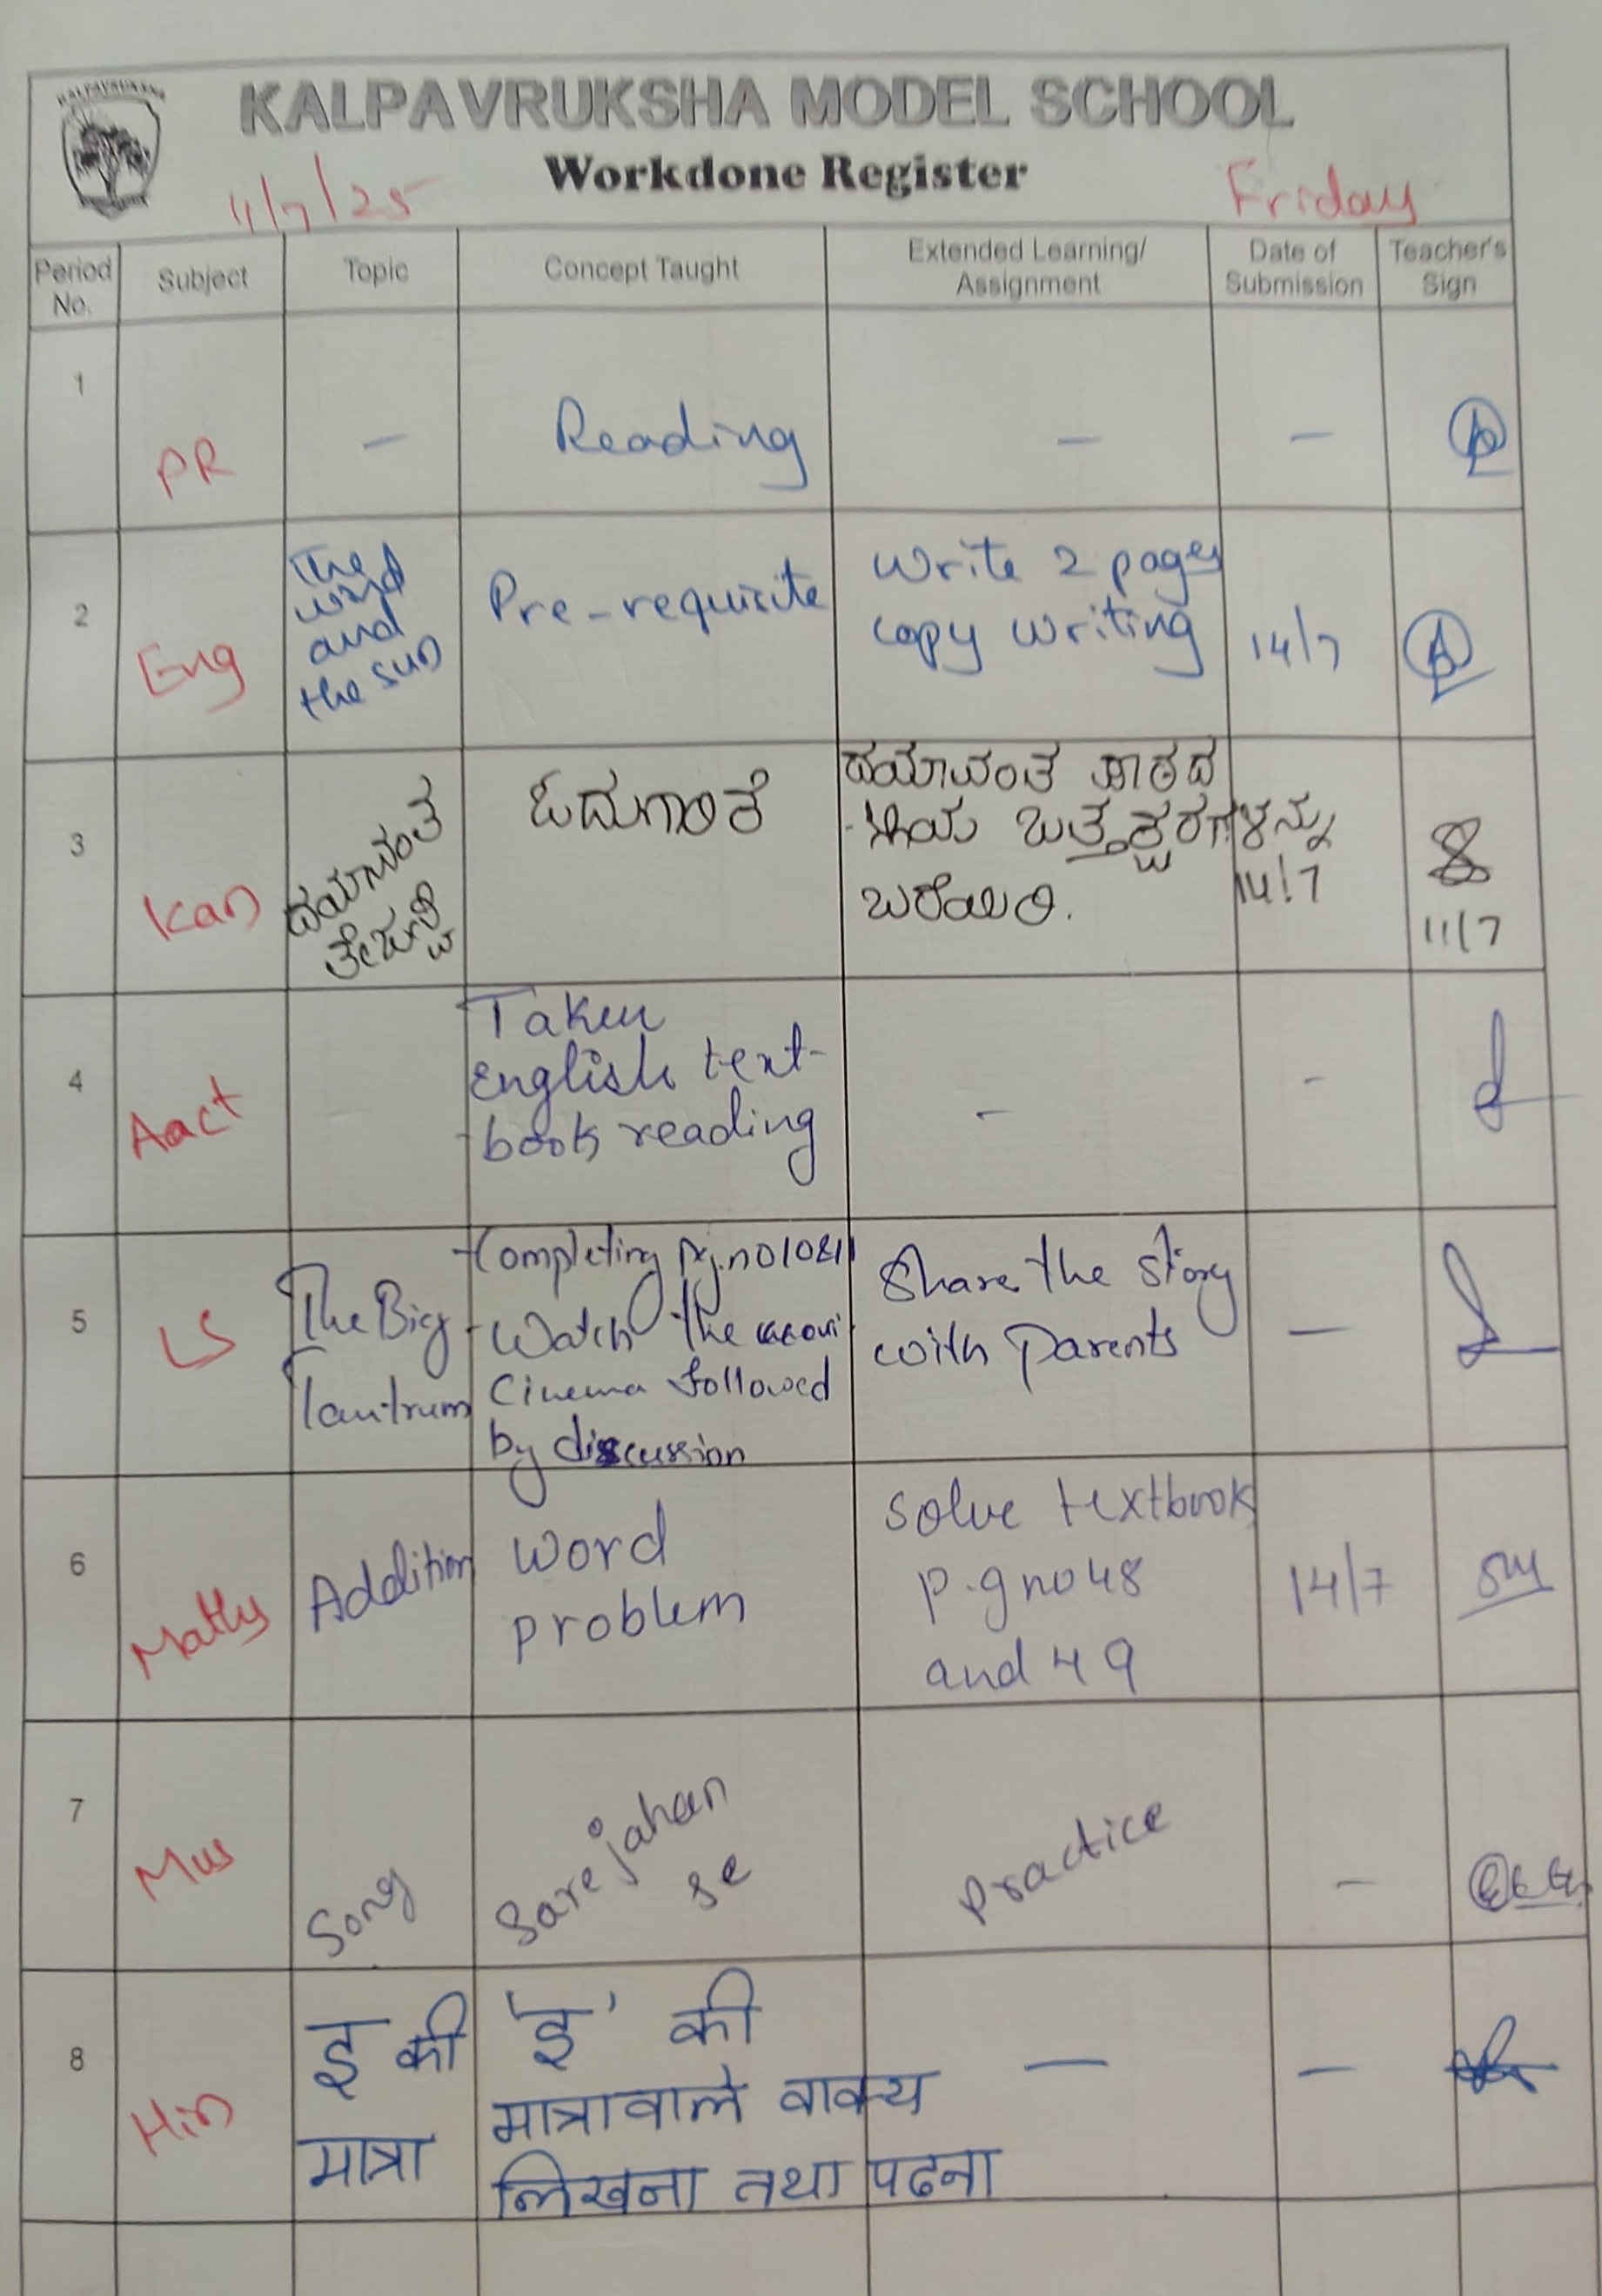 KALPAVRUKSHA
KALPAVRUKSHA MODEL SCHOOL
Workdone Register
11/7/25
Friday
Period No.
Subject
Topic
Concept Taught
Extended Learning/
Assignment
Date of
Submission
Teacher's
Sign
1
PR
-
Reading
-
-
2
Eng
The
wind
and
the sun
Pre-requisite
Write 2 pages
copy writing
14/7
3
Kan
ದಯಾವಂತ
ಓದುಗಾರಿಕೆ
ದಯಾವಂತ ಪಾಠದ
ಒತ್ತಕ್ಷರಗಳನ್ನು
ಬರೆಯಿರಿ.
14/7
11/7
4
Aact
Taken
English text-
-book reading
-
-
5
LS
The Big
Tantrum
-Completing pg.no
-Watch the
Cinema followed
by discussion
Share the story
with parents
-
6
Maths
Addition
word
problem
Solve textbook
p.g no 48
and 49
14/7
7
Mus
Song
Sare jahan
se
practice
-
8
Hin
इ की
मात्रा
'इ' की
मात्रावाले वाक्य
लिखना तथा पढना
-
-